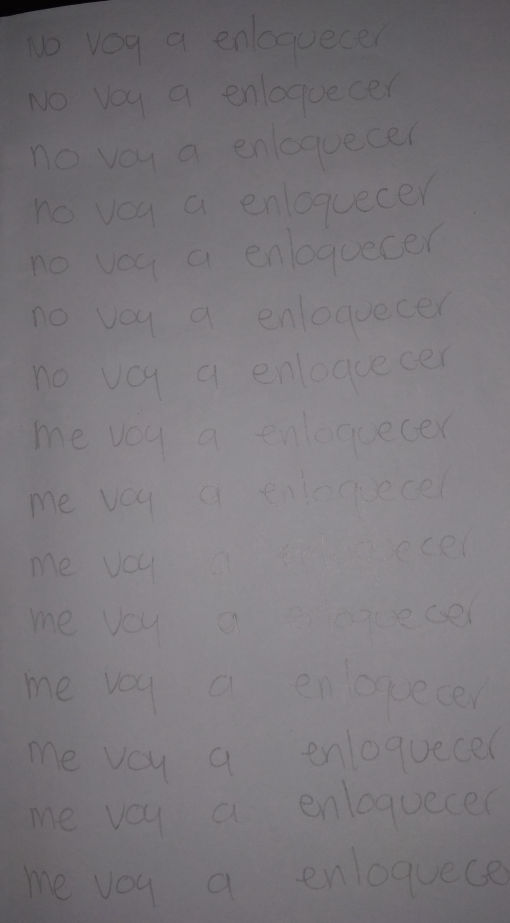 No voy a enloquecer
No voy a enloquecer
no voy a enloquecer
no voy a enloquecer
no voy a enloquecer
no voy a enloquecer
no voy a enloquecer
me voy a enloquecer
me voy a enloquecer
me voy a enloquecer
me voy a enloquecer
me voy a enloquecer
me voy a enloquecer
me voy a enloquecer
me voy a enloquece